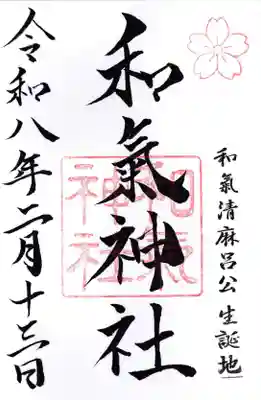 和氣清麻呂公生誕地
和氣神社
令和八年二月十三日